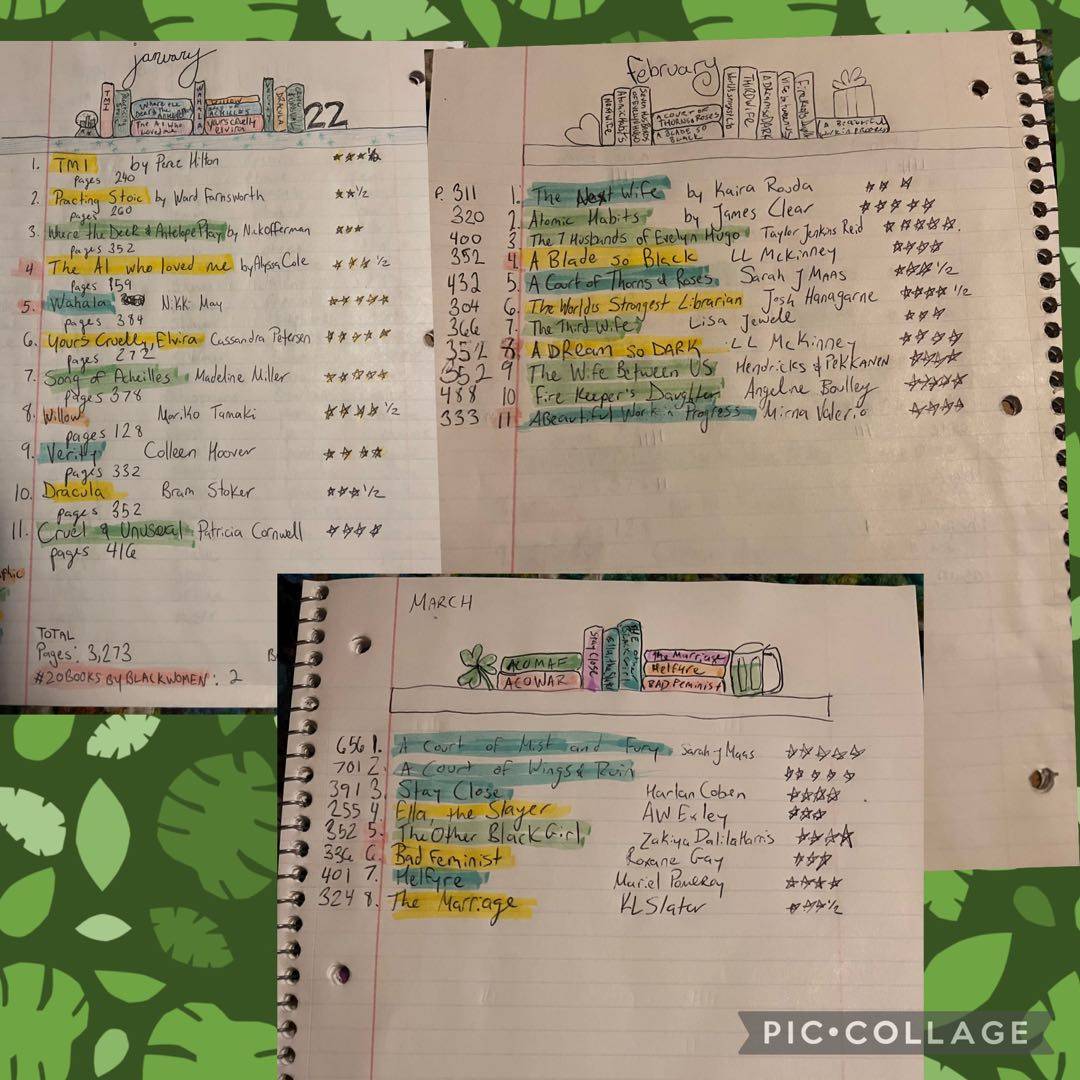 january
TMI
WAHALA
DRACULA
The AI who
loved me
Yours Cruelly
Elvira
22
1. TMI by Perez Hilton ★★★½
pages 240
2. Practing Stoic by Ward Farnsworth ★★1/2
pages 260
3. Where the Deer & Antelope Play by Nick offerman ★★★
pages 352
4 The AI who loved me by Alyssa Cole ★★★ 1/2
pages 159
5. Wahala Nikki May ★★★★
pages 384
6. Yours Cruelly, Elvira Cassandra Petersen ★★★★★
pages 272
7. Song of Acheilles Madeline Miller ★★★★★
pages 378
8. Willow Mariko Tamaki ★★★★1/2
pages 128
9. Verity Colleen Hoover ★★★★
pages 332
10. Dracula Bram Stoker ★★★1/2
pages 352
11. Cruel & Unusual Patricia Cornwell ★★★★
pages 416
phic
TOTAL
Pages: 3,273
#20BOOKS BY BLACKWOMEN: 2
february
A COURT OF
THORNS & ROSES
A BLADE SO
BLACK
THIRD WIFE
A DREAM SO DARK
A Beautiful
Work in Progress
P. 311 1. The Next Wife by Kaira Rouda ★★★
320 2. Atomic Habits by James Clear ★★★★★
400 3 The 7 Husbands of Evelyn Hugo Taylor Jenkins Reid ★★★★★.
352 4. A Blade So Black LL McKinney ★★★★
432 5. A Court of Thorns & Roses Sarah J MAAS ★★★1/2
304 6. The World's Strongest Librarian Josh Hanagarne ★★★★1/2
366 7. The Third Wife Lisa Jewell ★★★
352 8 A DReam so DARK LL McKinney ★★★★
352 9 The Wife Between US Hendricks & PEKKANEN ★★★★
488 10 Fire Keeper's Daughter Angeline Boulley ★★★★★
333 11 A Beautiful Work in Progress Mirna Valerio ★★★★
MARCH
ACOMAF
ACOWAR
Stay Close
Ella, the Slayer
THE Other
Black Girl
The Marriage
Helfyre
BAD Feminist
656 1. A Court of Mist and Fury Sarah J Maas ★★★★★
701 2. A Court of Wings & Ruin ★★★★★
391 3. Stay Close Harlan Coben ★★★★
255 4. Ella, the Slayer AW Exley ★★★
352 5. The Other Black Girl Zakiya Dalila Harris ★★★★
336 6. Bad Feminist Roxane Gay ★★★
401 7. Helfyre Mariel Pomeroy ★★★★
324 8. The Marriage KL Slater ★★★1/2
PIC•COLLAGE